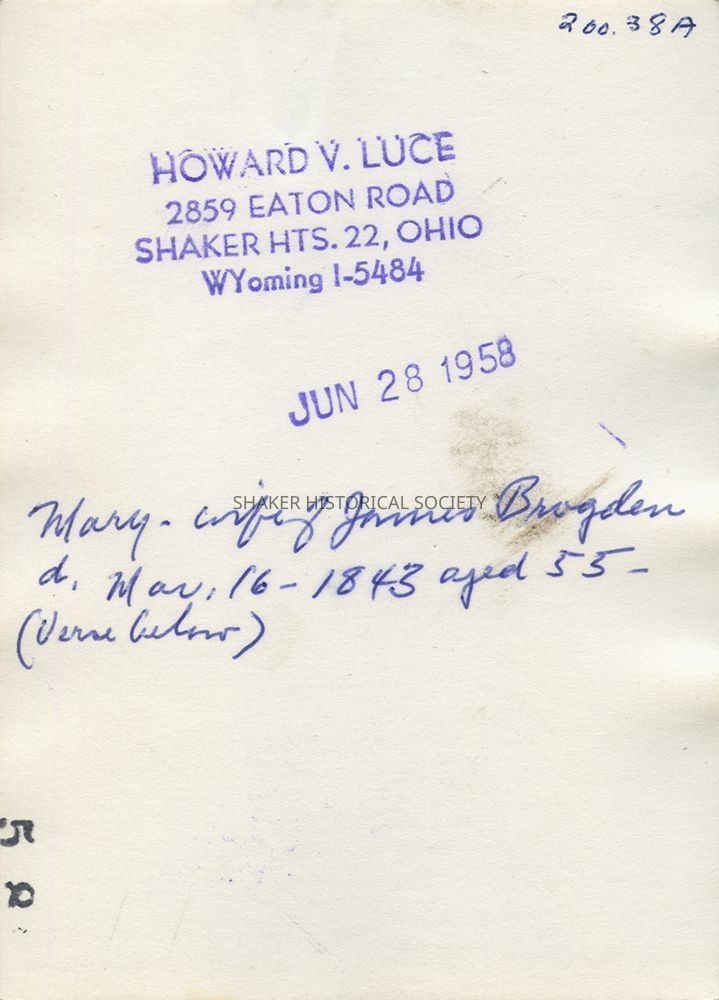 200.38A
HOWARD V. LUCE
2859 EATON ROAD
SHAKER HTS. 22, OHIO
WYoming 1-5484
JUN 28 1958
SHAKER HISTORICAL SOCIETY
Mary - wife of James Brogden
d. Mar. 16 - 1843 aged 55 -
(Verse below)
5
a